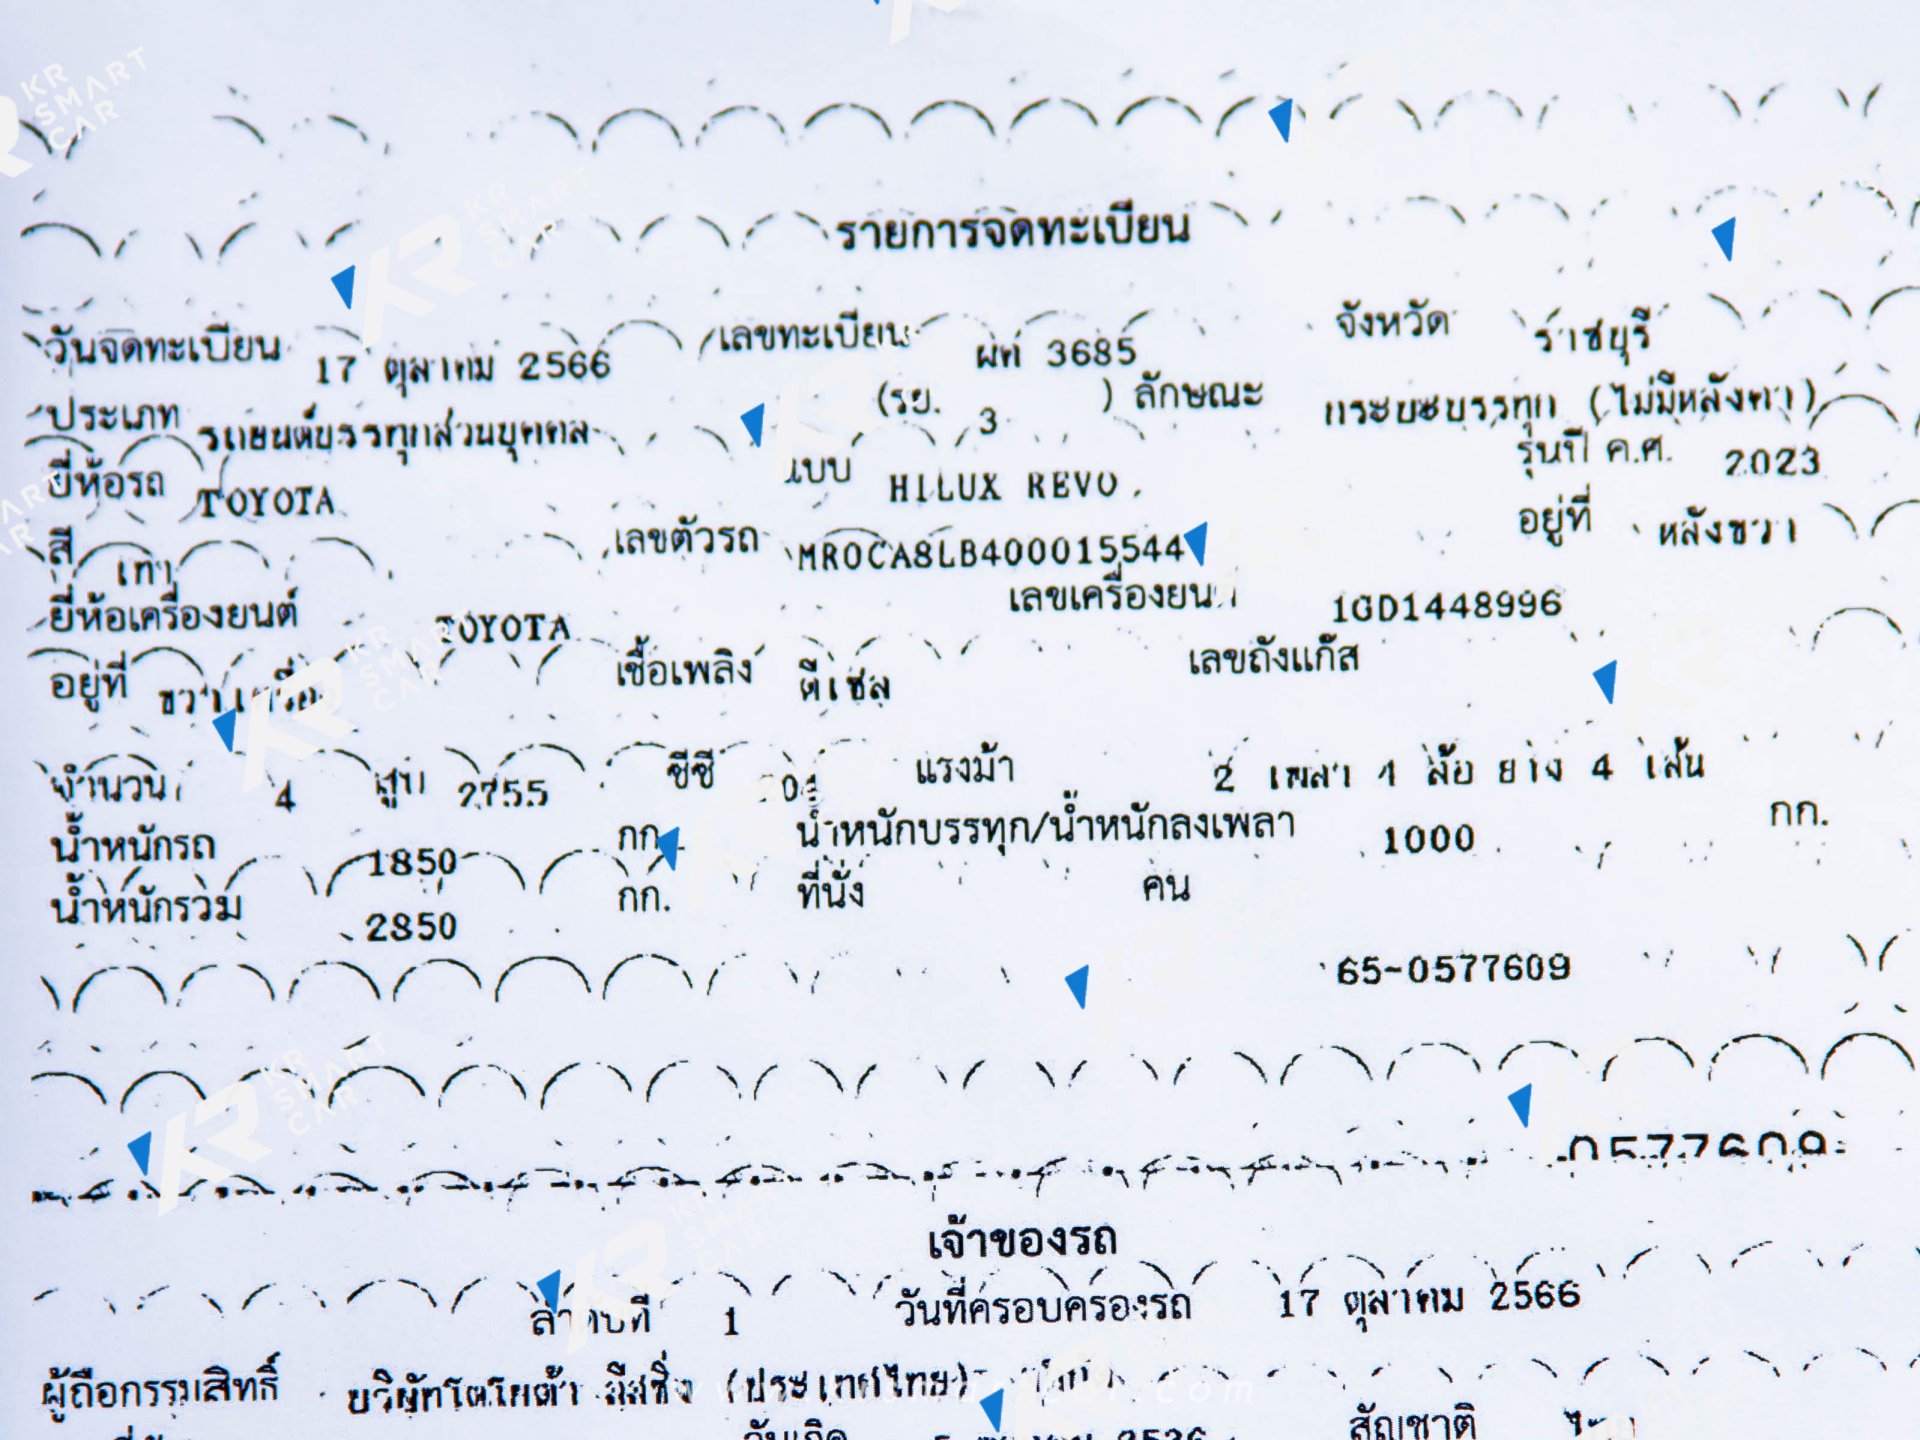 รายการจดทะเบียน
วันจดทะเบียน 17 ตุลาคม 2566 เลขทะเบียน ผต 3685 จังหวัด ราชบุรี
ประเภท รถยนต์บรรทุกส่วนบุคคล (รย. 3 ) ลักษณะ กระบะบรรทุก (ไม่มีหลังคา)
ยี่ห้อรถ TOYOTA แบบ HILUX REVO รุ่นปี ค.ศ. 2023
สี เทา เลขตัวรถ MR0CA8LB400015544 อยู่ที่ หลังขวา
ยี่ห้อเครื่องยนต์ TOYOTA เลขเครื่องยนต์ 1GD1448996
อยู่ที่ ขวาเครื่อง เชื้อเพลิง ดีเซล เลขถังแก๊ส
จำนวน 4 สูบ 2755 ซีซี แรงม้า 2 เพลา 4 ล้อ ยาง 4 เส้น
น้ำหนักรถ 1850 กก. น้ำหนักบรรทุก/น้ำหนักลงเพลา 1000 กก.
น้ำหนักรวม 2850 กก. ที่นั่ง คน
65-0577609
0577609
เจ้าของรถ
ลำดับที่ 1 วันที่ครอบครองรถ 17 ตุลาคม 2566
ผู้ถือกรรมสิทธิ์ บริษัทโตโยต้า ลีสซิ่ง (ประเทศไทย)
วันเกิด 2536 สัญชาติ ไทย
KR SMART CAR